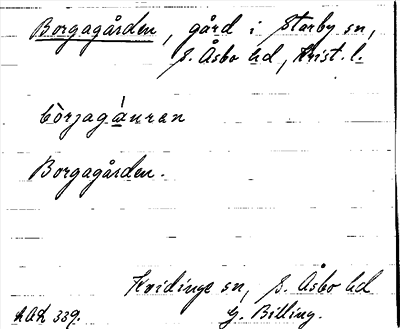 Borgagården, gård i Starby sn,
S. Åsbo hd, Krist. l.
bòrjagá̀uran
Borgagården.
Kvidinge sn, S. Åsbo hd
LAL 339. G. Billing.